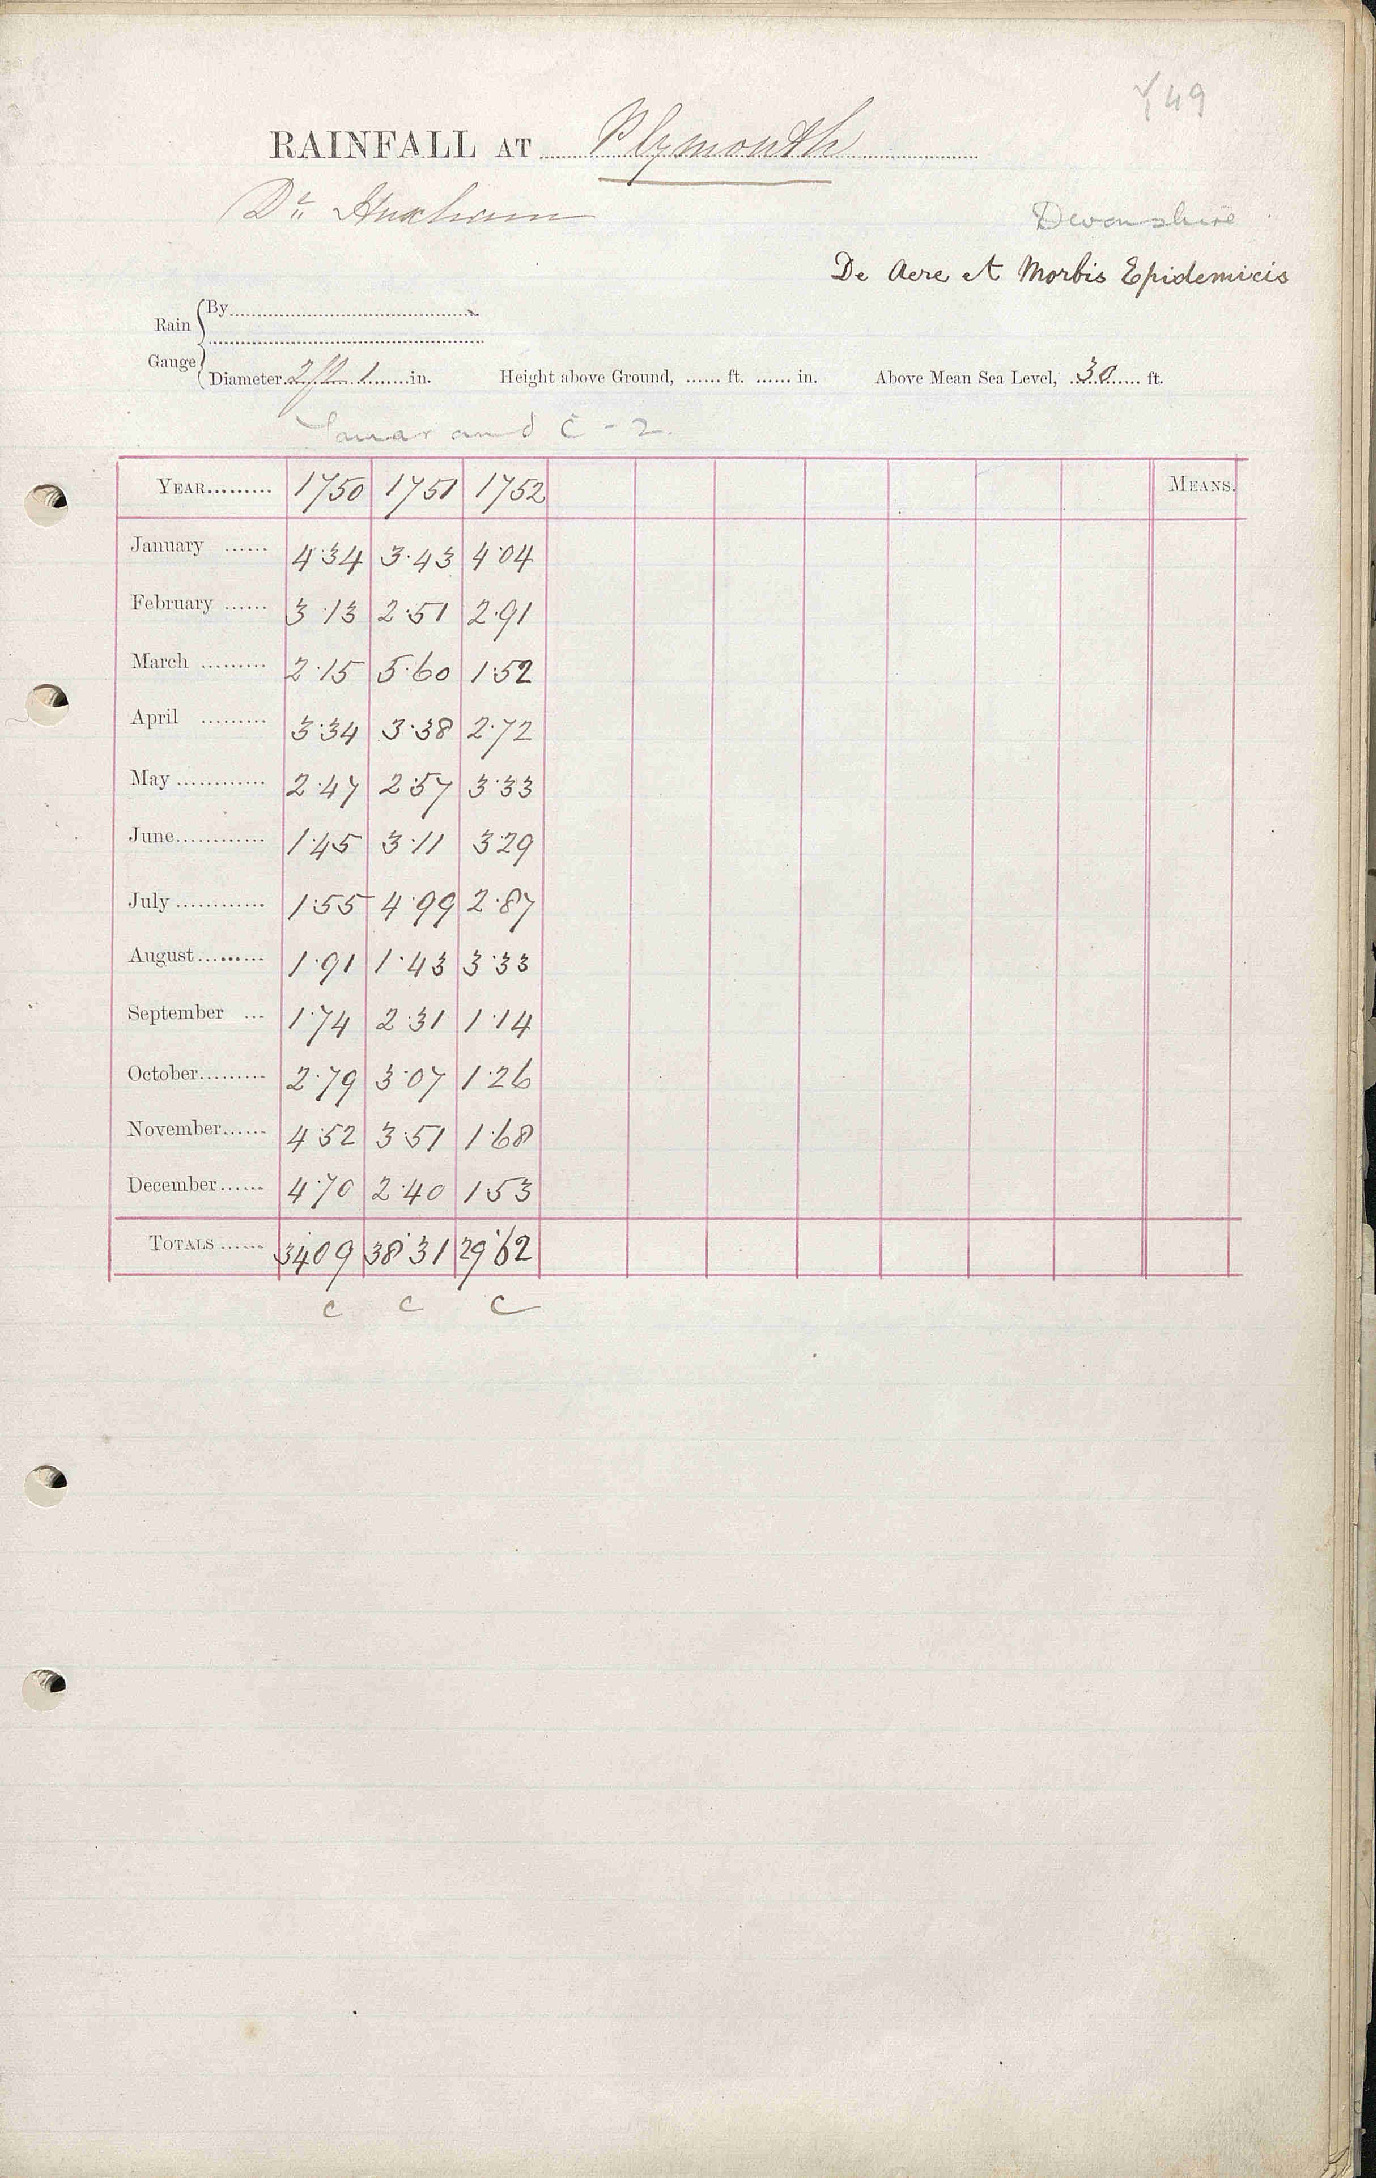 49
RAINFALL AT Plymouth
Dr Huxham
Devonshire
De Aere et Morbis Epidemicis
Rain Gauge { By
Diameter 2 ft 1 in. Height above Ground, ...... ft. ...... in. Above Mean Sea Level, 30 ft.
and C - 2.
YEAR......... 1750 1751 1752 MEANS.
January ...... 4.34 3.43 4.04
February ...... 3.13 2.51 2.91
March ......... 2.15 5.60 1.52
April ......... 3.34 3.38 2.72
May ............ 2.47 2.57 3.33
June............ 1.45 3.11 3.29
July ............ 1.55 4.99 2.87
August......... 1.91 1.43 3.33
September ... 1.74 2.31 1.14
October......... 2.79 3.07 1.26
November...... 4.52 3.51 1.68
December...... 4.70 2.40 1.53
TOTALS ...... 34.09 38.31 29.62
c c c